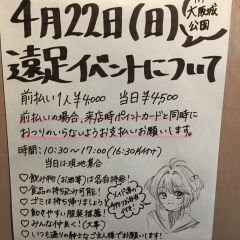 4月22日(日)
大阪城
公園
遠足イベントについて
前払い1人¥4000 当日¥4500
前払いの場合、来店時ポイントカードと同時に
おつりのいらないようお支払いお願いします。
時間:10:30~17:00(16:30片付け)
当日は現地集合
♡飲み物(お酒等)は各自持参!
♡食品の持ち込み可能!
♡ゴミは持ち帰りましょう
♡動きやすい服装推薦!
♡みんな仲良く!(大事)
♡いつも通りの紳士なご主人様でお願いします!
メイド達の
手作りお弁当
です!